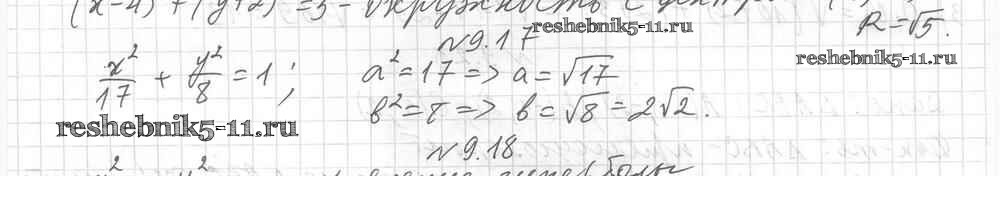 (x-4)² + (y+2)² = 5 - окружность с центр
R = √5.
reshebnik5-11.ru
N 9.17
reshebnik5-11.ru
x²/17 + y²/8 = 1; a² = 17 => a = √17
b² = 8 => b = √8 = 2√2.
reshebnik5-11.ru
N 9.18.